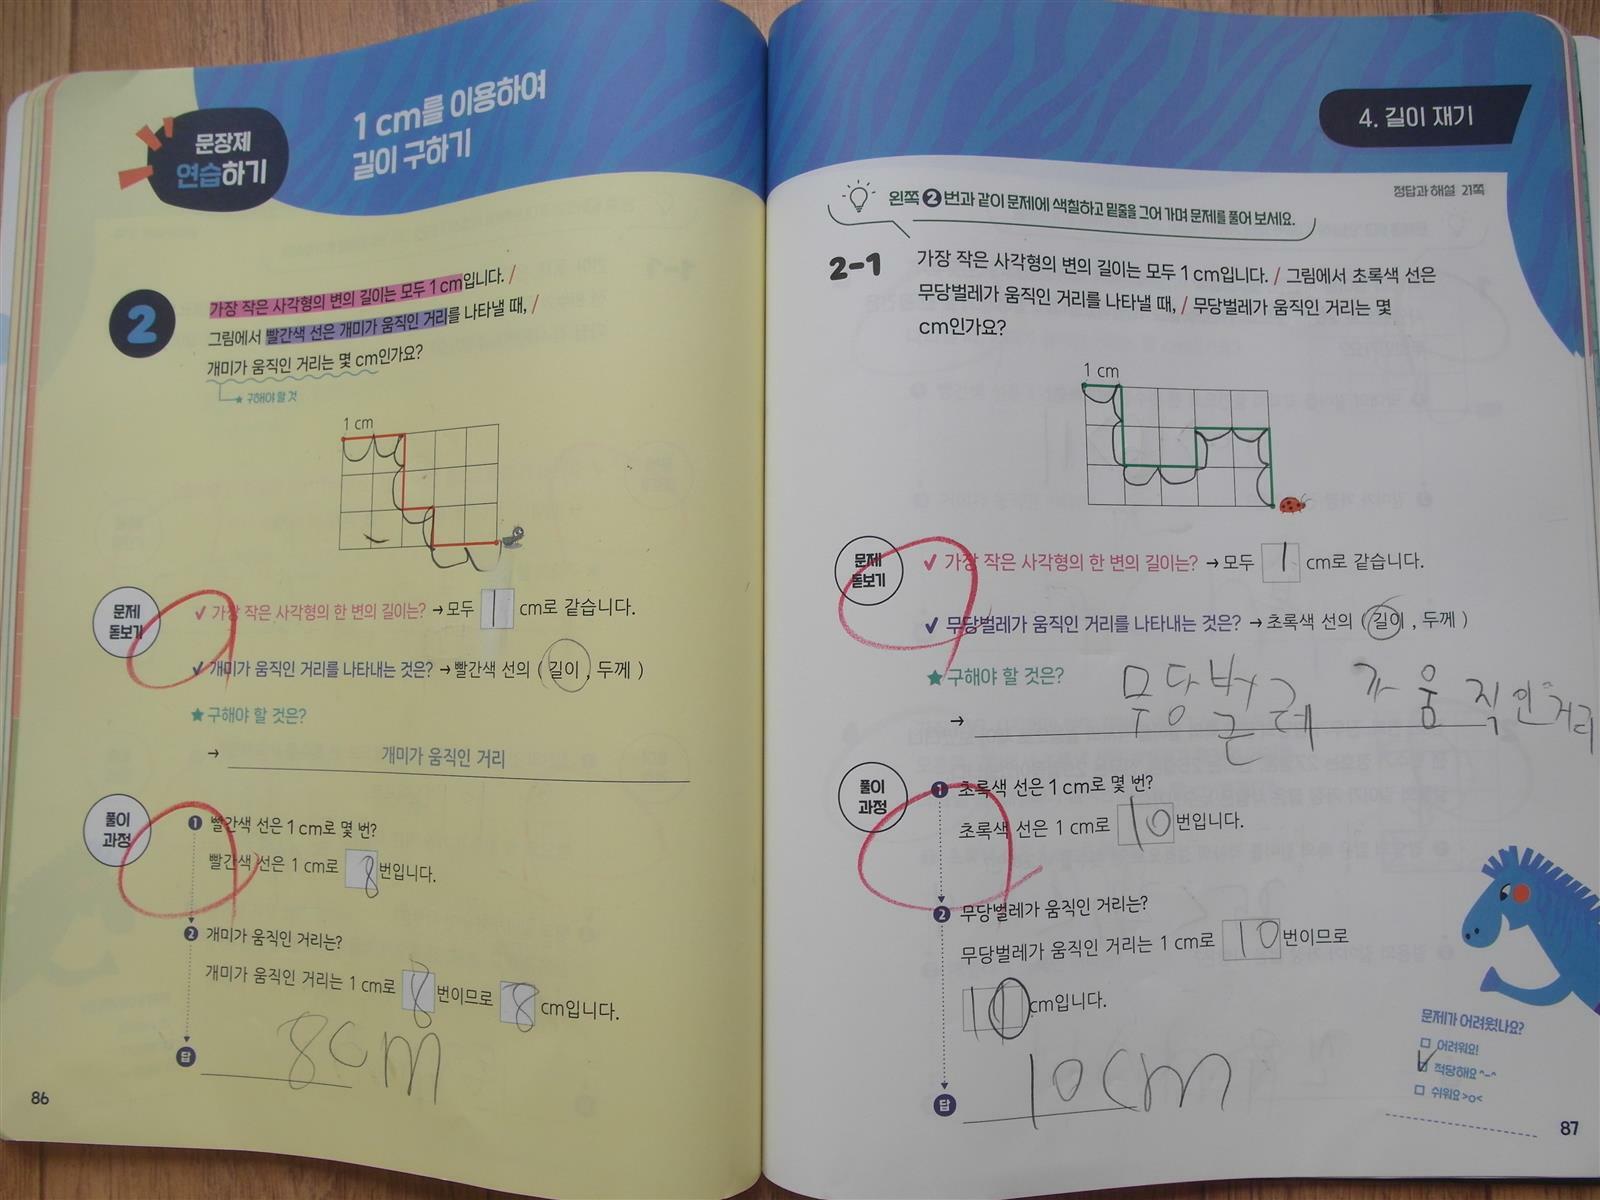 문장제
연습하기
1 cm를 이용하여
길이 구하기
2
가장 작은 사각형의 변의 길이는 모두 1 cm입니다. /
그림에서 빨간색 선은 개미가 움직인 거리를 나타낼 때, /
개미가 움직인 거리는 몇 cm인가요?
★ 구해야 할 것
1 cm
문제
돋보기
✓ 가장 작은 사각형의 한 변의 길이는? → 모두 1 cm로 같습니다.
✓ 개미가 움직인 거리를 나타내는 것은? → 빨간색 선의 ( 길이 , 두께 )
★ 구해야 할 것은?
→ 개미가 움직인 거리
풀이
과정
❶ 빨간색 선은 1 cm로 몇 번?
빨간색 선은 1 cm로 8 번입니다.
❷ 개미가 움직인 거리는?
개미가 움직인 거리는 1 cm로 8 번이므로 8 cm입니다.
답 8cm
86
4. 길이 재기
정답과 해설 21쪽
왼쪽 ❷ 번과 같이 문제에 색칠하고 밑줄을 그어 가며 문제를 풀어 보세요.
2-1
가장 작은 사각형의 변의 길이는 모두 1 cm입니다. / 그림에서 초록색 선은
무당벌레가 움직인 거리를 나타낼 때, / 무당벌레가 움직인 거리는 몇
cm인가요?
1 cm
문제
돋보기
✓ 가장 작은 사각형의 한 변의 길이는? → 모두 1 cm로 같습니다.
✓ 무당벌레가 움직인 거리를 나타내는 것은? → 초록색 선의 ( 길이 , 두께 )
★ 구해야 할 것은?
→ 무당벌레가 움직인 거리
풀이
과정
❶ 초록색 선은 1 cm로 몇 번?
초록색 선은 1 cm로 10 번입니다.
❷ 무당벌레가 움직인 거리는?
무당벌레가 움직인 거리는 1 cm로 10 번이므로
10 cm입니다.
답 10cm
문제가 어려웠나요?
어려워요!
적당해요 ^-^
쉬워요 >o<
87